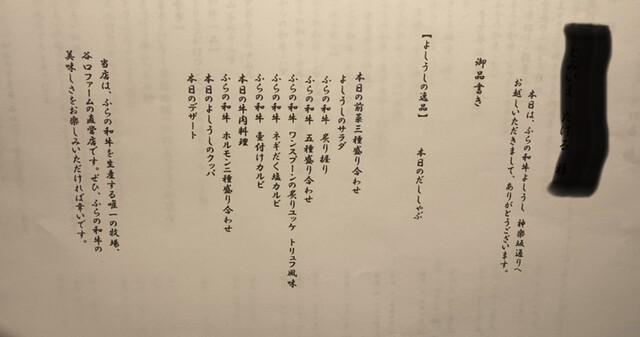 様
本日は、ふらの和牛よしうし 神楽坂通りへ
お越しいただきまして、ありがとうございます。
御品書き
【よしうしの逸品】 本日のだししゃぶ
本日の前菜三種盛り合わせ
よしうしのサラダ
ふらの和牛 炙り握り
ふらの和牛 五種盛り合わせ
ふらの和牛 ワンスプーンの炙りユッケ トリュフ風味
ふらの和牛 ネギだく塩カルビ
ふらの和牛 壺付けカルビ
本日の牛肉料理
ふらの和牛 ホルモン二種盛り合わせ
本日のよしうしのクッパ
本日のデザート
当店は、ふらの和牛を生産する唯一の牧場、
谷口ファームの直営店です。ぜひ、ふらの和牛の
美味しさをお楽しみいただければ幸いです。